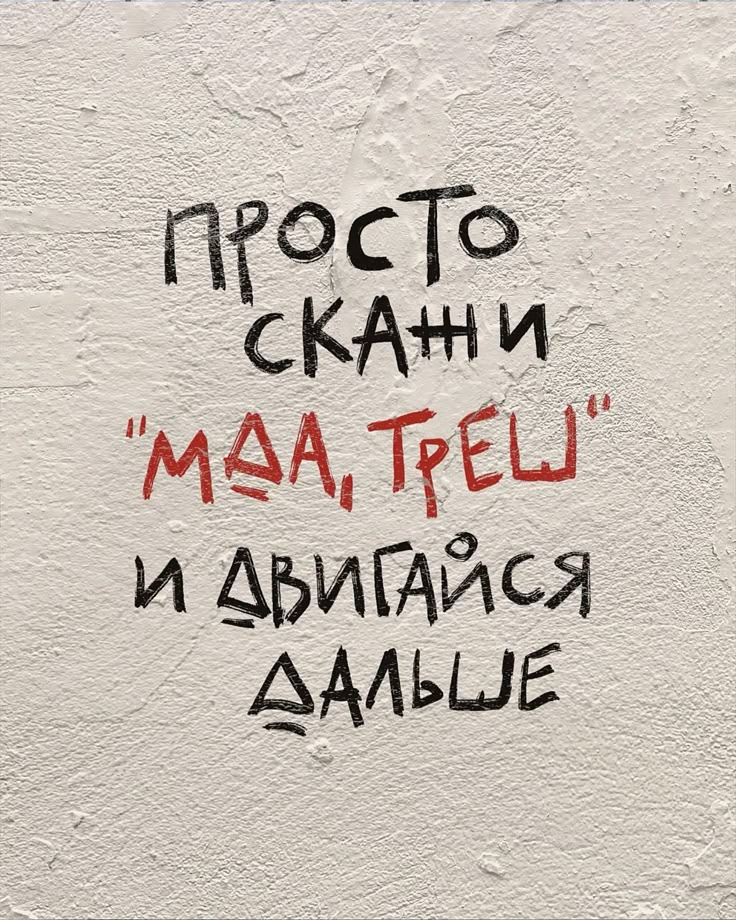 ПРОСТО
СКАЖИ
"МДА, ТРЕШ"
И ДВИГАЙСЯ
ДАЛЬШЕ